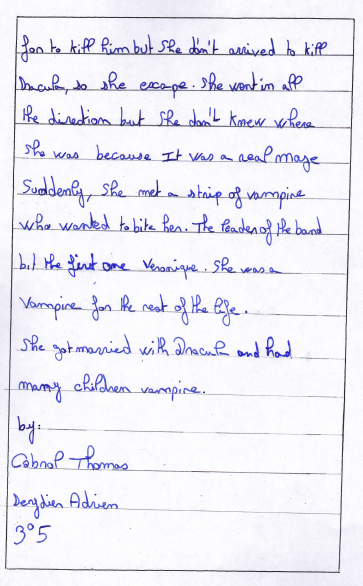 for to kill him but she don't arrived to kill
Dracula, so she escape. She went in all
the direction but she don't knew where
she was because It was a real maze
Suddenly, she met a strip of vampire
who wanted to bite her. The leader of the band
bit the first one Veronique. She was a
Vampire for the rest of the life.
She got married with Dracula and had
many children vampire.
by:
Cabral Thomas
Derydier Adrien
3°5